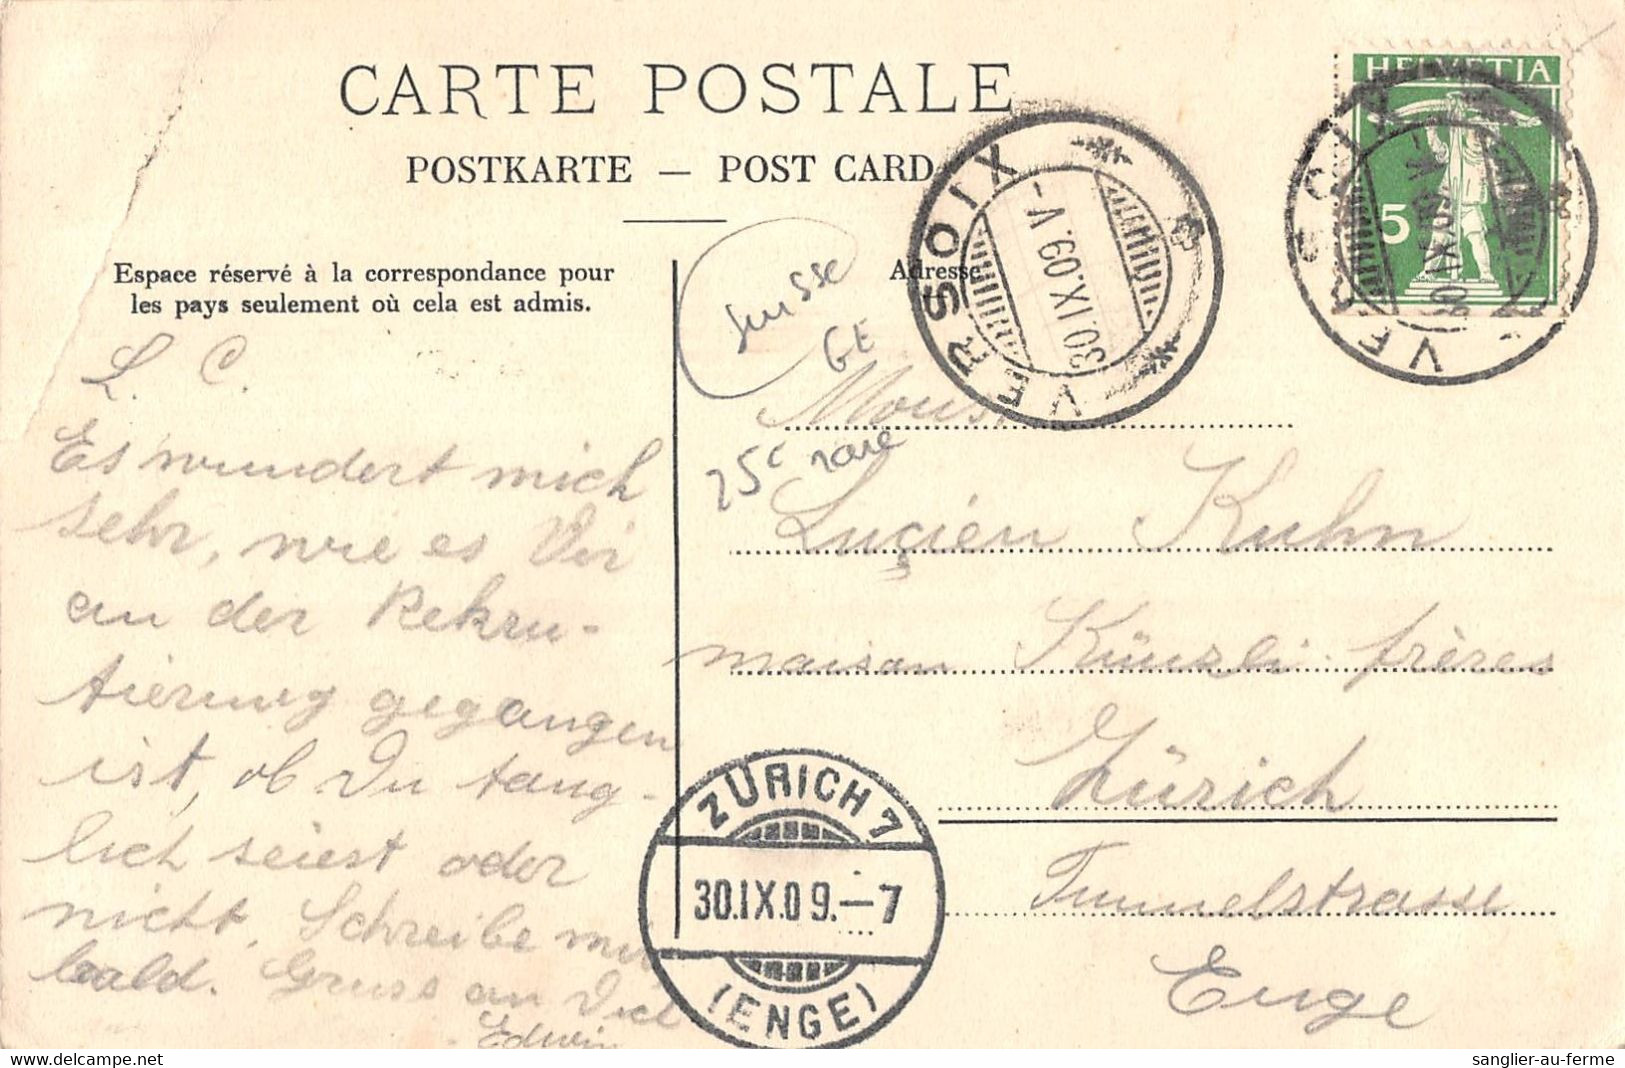 CARTE POSTALE
POSTKARTE — POST CARD
Espace réservé à la correspondance pour
les pays seulement où cela est admis.
Adresse
HELVETIA
5
VERSOIX
30.IX.09.-V
VERSOIX
Suisse
GE
25c rare
L. C.
Es wundert mich
sehr, wie es Dir
an der Rekru-
tierung gegangen
ist, ob Du taug-
lich seiest oder
nicht. Schreibe mir
bald. Gruss an Dich
Edwin
Mons.
Luçien Kuhn
maison Künzli frères
Zürich
Tunnelstrasse
Enge
ZÜRICH 7
30.IX.09.—7
(ENGE)
sanglier-au-ferme
www.delcampe.net